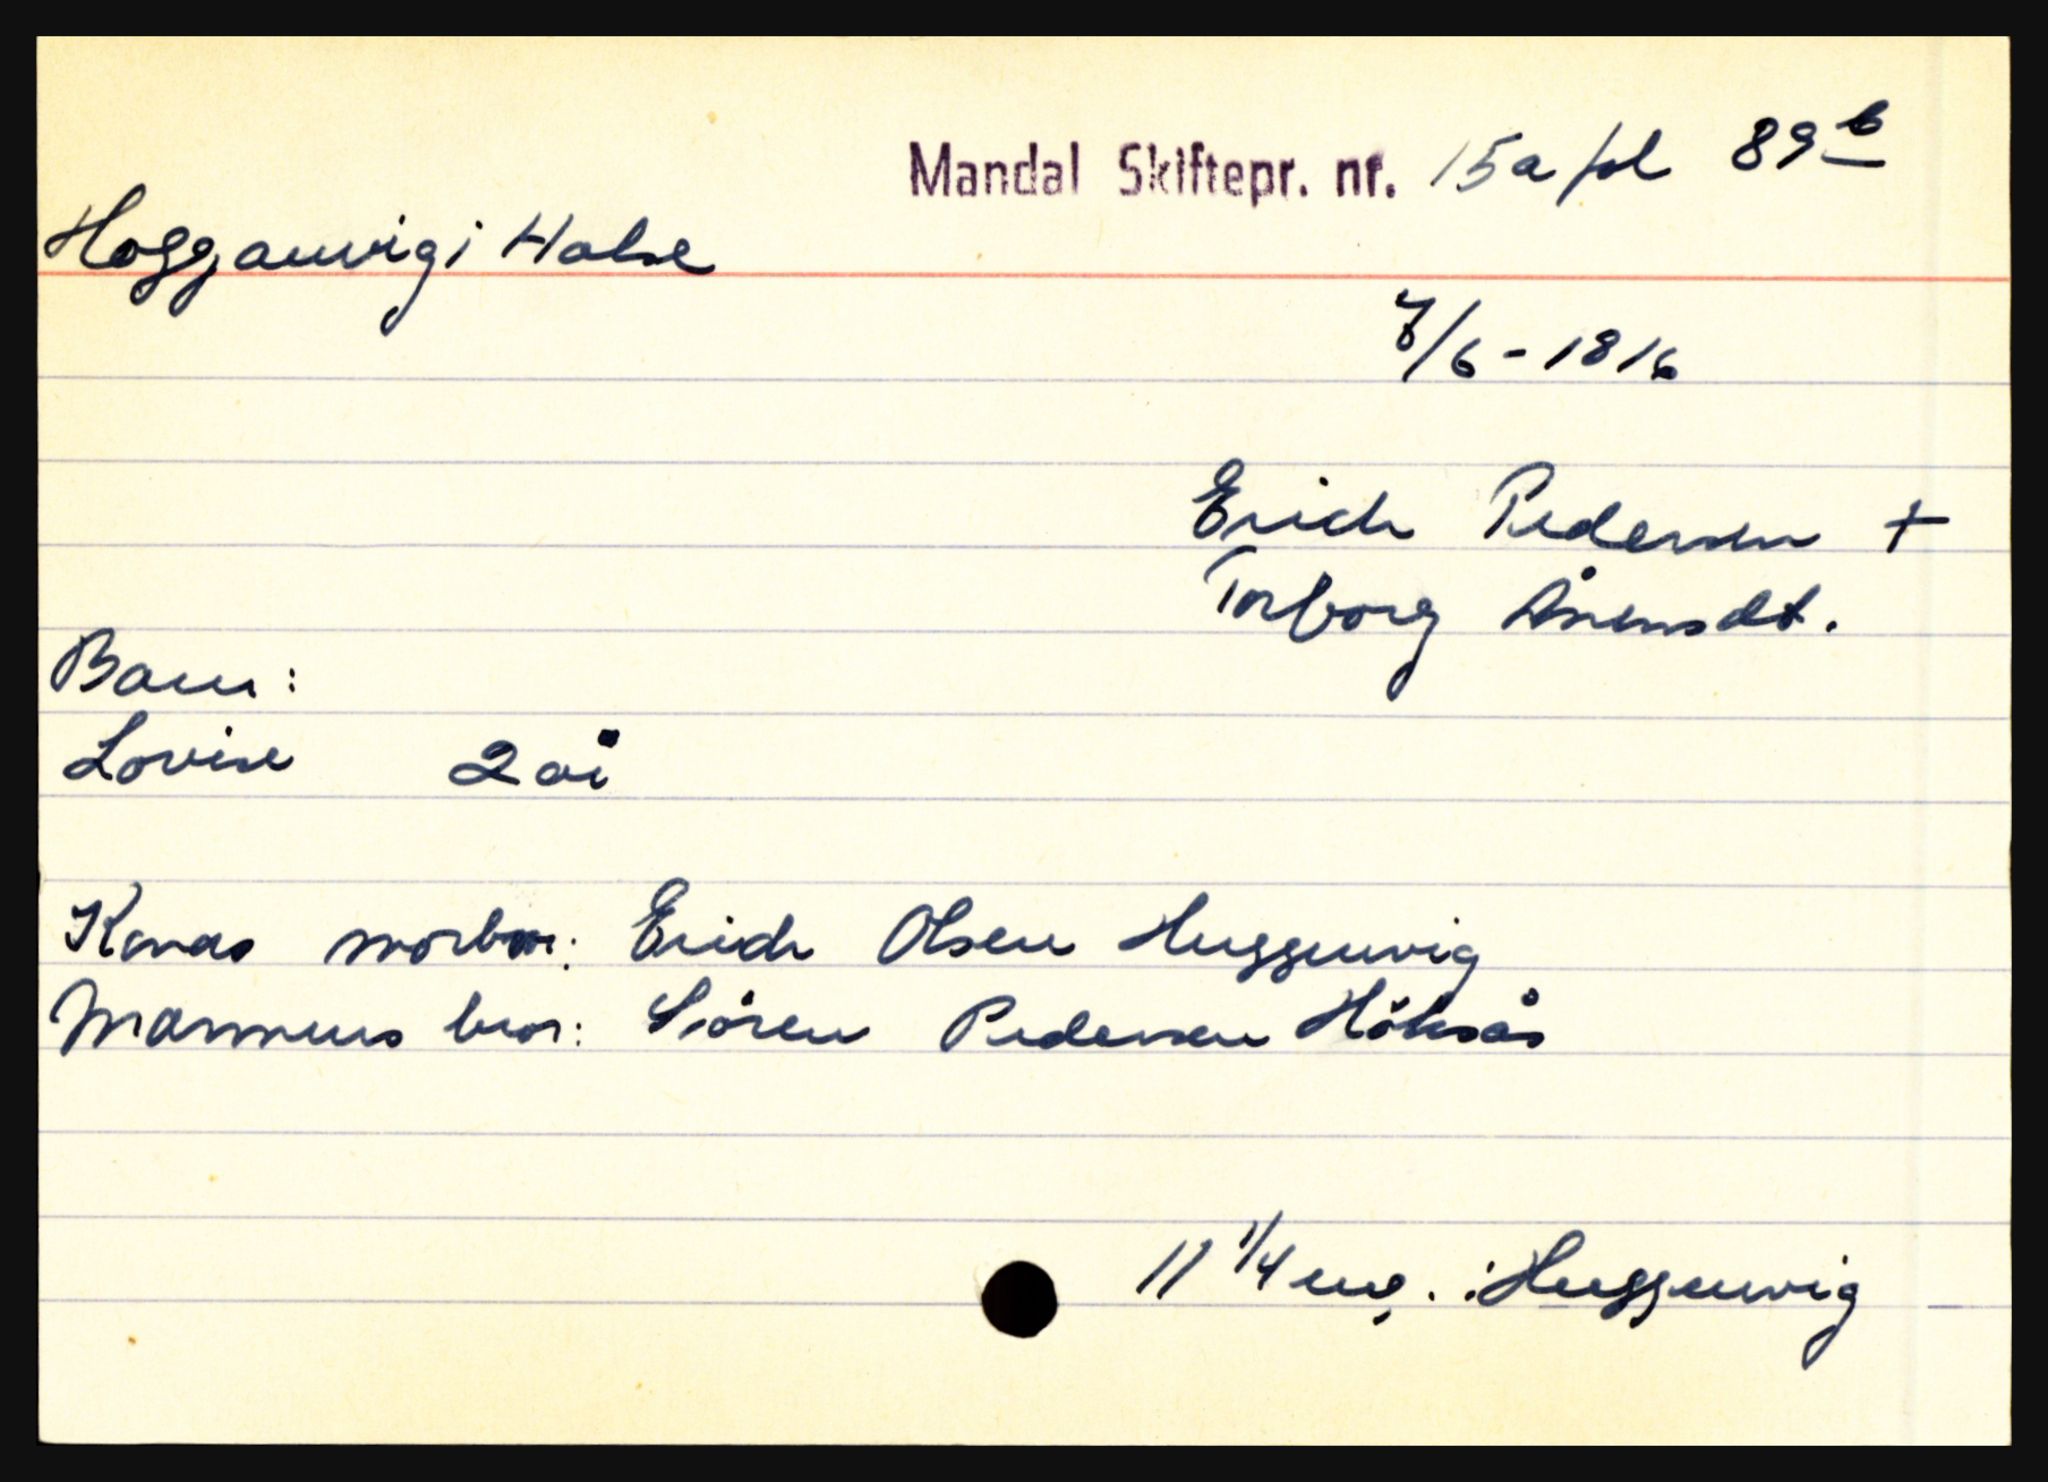 Mandal Skiftepr. nr. 15a fol 89b
Hoggamvig i Halse
7/6 - 1816
Erich Pedersen +
Torborg Ånensdt.
Barn:
Lovise 2 år
Konas morbror: Erich Olsen Huggumvig
Mannens bror: Sören Pedersen Höksås
11 1/4 eng. i Huggumvig